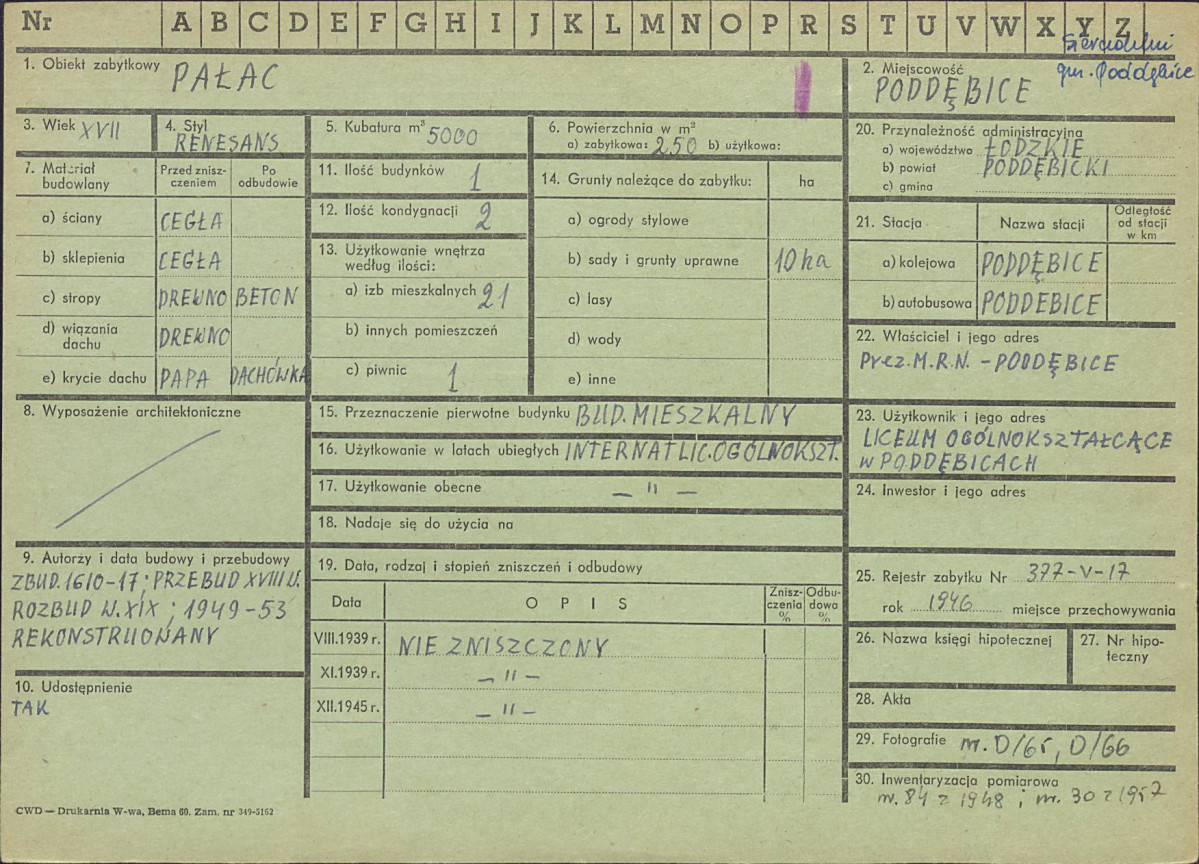 Nr A B C D E F G H I J K L M N O P R S T U V W X Y Z
gm. Poddębice
1. Obiekt zabytkowy PAŁAC
2. Miejscowość
PODDĘBICE
3. Wiek XVII
4. Styl
RENESANS
5. Kubatura m³ 5000
6. Powierzchnia w m²
a) zabytkowa: 250 b) użytkowa:
20. Przynależność administracyjna
a) województwo ŁÓDZKIE
b) powiat PODDĘBICKI
c) gmina
7. Materiał budowlany
Przed zniszczeniem
Po odbudowie
a) ściany CEGŁA
b) sklepienia CEGŁA
c) stropy DREWNO BETON
d) wiązania dachu DREWNO
e) krycie dachu PAPA DACHÓWKA
11. Ilość budynków 1
12. Ilość kondygnacji 2
13. Użytkowanie wnętrza
według ilości:
a) izb mieszkalnych 21
b) innych pomieszczeń
c) piwnic 1
14. Grunty należące do zabytku: ha
a) ogrody stylowe
b) sady i grunty uprawne 10 ha
c) lasy
d) wody
e) inne
21. Stacja Nazwa stacji Odległość od stacji w km
a) kolejowa PODDĘBICE
b) autobusowa PODDEBICE
22. Właściciel i jego adres
Prez. M.R.N. - PODDĘBICE
8. Wyposażenie architektoniczne
15. Przeznaczenie pierwotne budynku BUD. MIESZKALNY
16. Użytkowanie w latach ubiegłych INTERNAT LIC. OGÓLNOKSZT.
17. Użytkowanie obecne — " —
18. Nadaje się do użycia na
23. Użytkownik i jego adres
LICEUM OGÓLNOKSZTAŁCĄCE
W PODDĘBICACH
24. Inwestor i jego adres
9. Autorzy i data budowy i przebudowy
ZBUD. 1610-17; PRZEBUD XVIII W.
ROZBUD W. XIX ; 1949-53
REKONSTRUOWANY
10. Udostępnienie
TAK
19. Data, rodzaj i stopień zniszczeń i odbudowy
Data OPIS Zniszczenia % Odbudowa %
VIII.1939 r. NIE ZNISZCZONY
XI.1939 r. — " —
XII.1945 r. — " —
25. Rejestr zabytku Nr 377-V-17
rok 1946 miejsce przechowywania
26. Nazwa księgi hipotecznej
27. Nr hipoteczny
28. Akta
29. Fotografie nr. D/65, D/66
30. Inwentaryzacja pomiarowa
nr. 84 z 1948 ; nr. 30 z 1957
CWD — Drukarnia W-wa, Bema 60. Zam. nr 349-5162